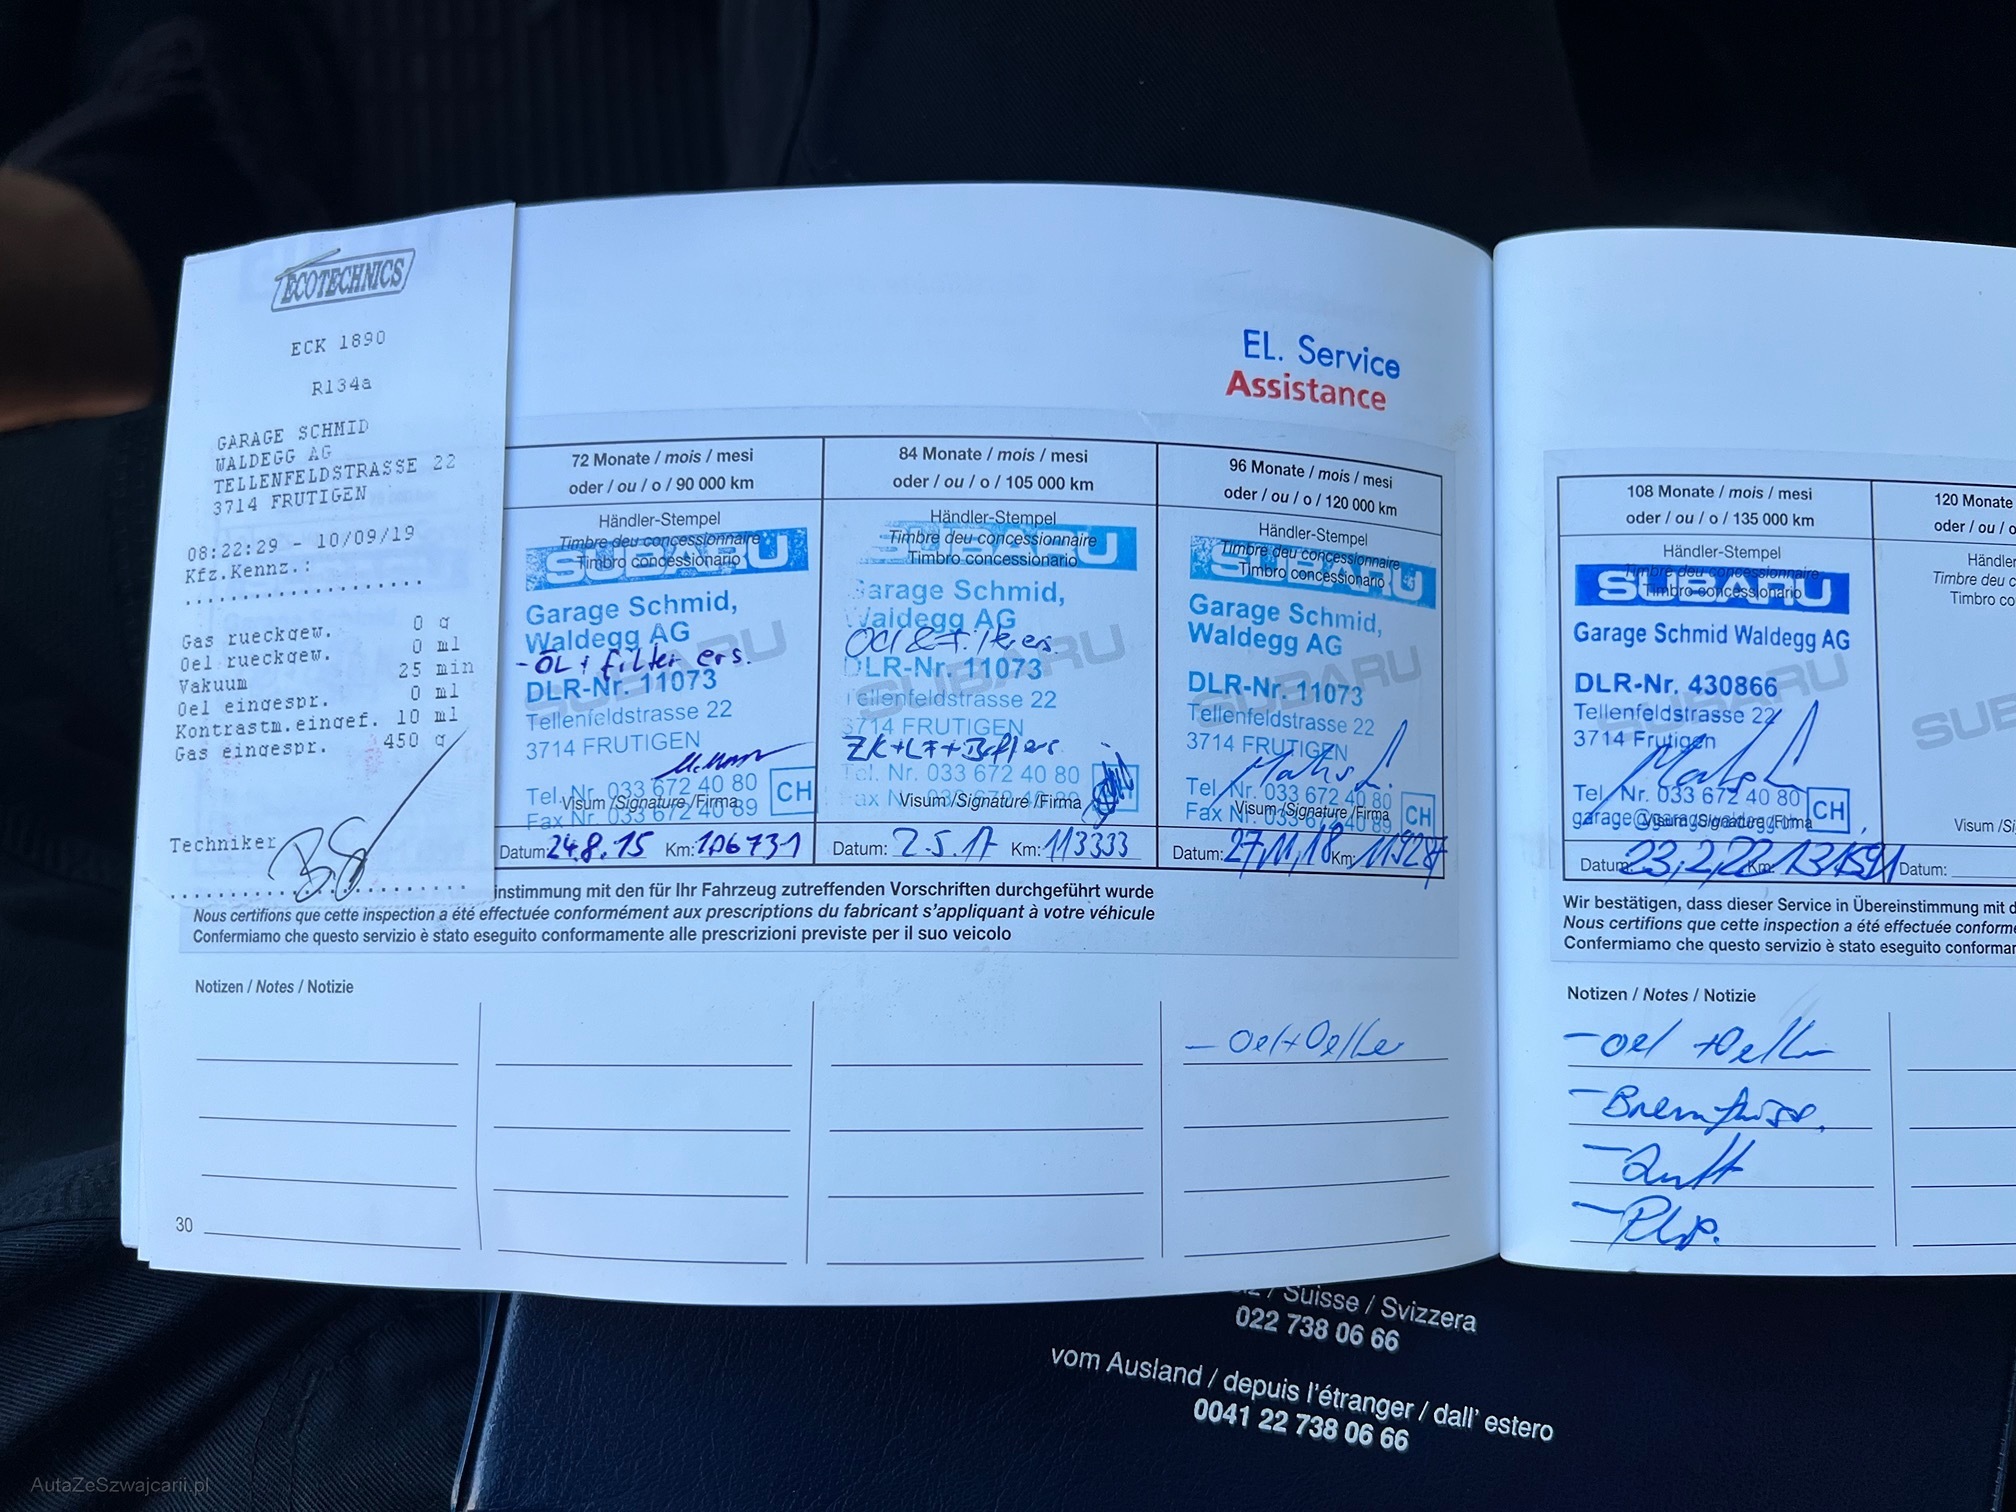 ECOTECHNICS
ECK 1890
R134a
GARAGE SCHMID
WALDEGG AG
TELLENFELDSTRASSE 22
3714 FRUTIGEN
08:22:29 - 10/09/19
Kfz.Kennz.:
Gas rueckgew. 0 g
Oel rueckgew. 0 ml
Vakuum 25 min
Oel eingespr. 0 ml
Kontrastm.eingef. 10 ml
Gas eingespr. 450 g
Techniker
EL. Service
Assistance
72 Monate / mois / mesi
oder / ou / o / 90 000 km
Händler-Stempel
Timbre deu concessionnaire
Timbro concessionario
SUBARU
Garage Schmid,
Waldegg AG
- ÖL + filter ers.
DLR-Nr. 11073
SUBARU
Tellenfeldstrasse 22
3714 FRUTIGEN
Tel. Nr. 033 672 40 80
Visum /Signature /Firma
Fax Nr. 033 672 40 89
CH
Datum: 24.8.15 Km: 106731
84 Monate / mois / mesi
oder / ou / o / 105 000 km
Händler-Stempel
Timbre deu concessionnaire
Timbro concessionario
SUBARU
Garage Schmid,
Waldegg AG
DLR-Nr. 11073
SUBARU
Tellenfeldstrasse 22
3714 FRUTIGEN
Tel. Nr. 033 672 40 80
Visum /Signature /Firma
Datum: 2.5.17 Km: 113333
96 Monate / mois / mesi
oder / ou / o / 120 000 km
Händler-Stempel
Timbre deu concessionnaire
Timbro concessionario
SUBARU
Garage Schmid,
Waldegg AG
DLR-Nr. 11073
SUBARU
Tellenfeldstrasse 22
3714 FRUTIGEN
Tel. Nr. 033 672 40 80
Visum /Signature /Firma
Fax Nr. 033 672 40 89
CH
Datum: 27,11,18 Km:
instimmung mit den für Ihr Fahrzeug zutreffenden Vorschriften durchgeführt wurde
Nous certifions que cette inspection a été effectuée conformément aux prescriptions du fabricant s'appliquant à votre véhicule
Confermiamo che questo servizio è stato eseguito conformamente alle prescrizioni previste per il suo veicolo
Notizen / Notes / Notizie
30
108 Monate / mois / mesi
oder / ou / o / 135 000 km
Händler-Stempel
Timbre deu concessionnaire
Timbro concessionario
SUBARU
Garage Schmid Waldegg AG
DLR-Nr. 430866
SUBARU
Tellenfeldstrasse 22
3714 Frutigen
Tel. Nr. 033 672 40 80
Visum /Signature /Firma
CH
Datum: 23,2,22 Km: 131591
120 Monate
oder / ou / o
Händler
Timbre deu c
Timbro co
SUB
Visum /Si
Datum:
Wir bestätigen, dass dieser Service in Übereinstimmung mit d
Nous certifions que cette inspection a été effectuée conformé
Confermiamo che questo servizio è stato eseguito conforman
Notizen / Notes / Notizie
/ Suisse / Svizzera
022 738 06 66
vom Ausland / depuis l'étranger / dall' estero
0041 22 738 06 66
AutaZeSzwajcarii.pl